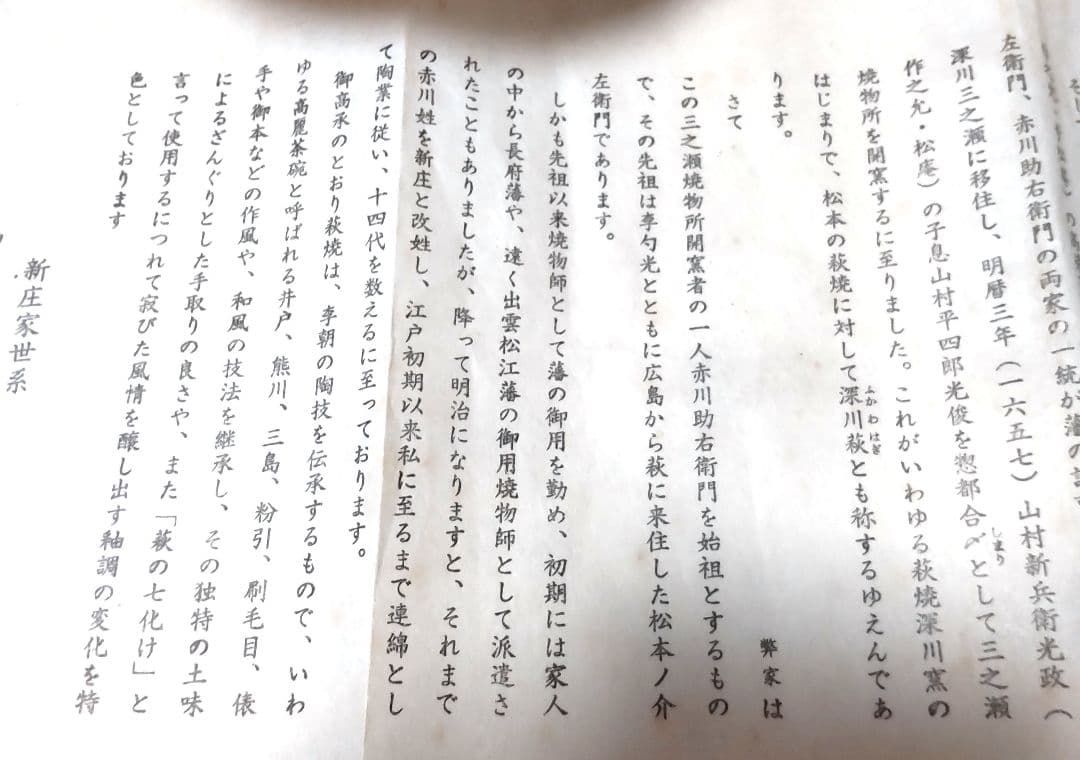 左衛門、赤川助右衛門の両家の一統が藩の
深川三之瀬に移住し、明暦三年（一六五七）山村新兵衛光政（
作之允・松庵）の子息山村平四郎光俊を惣都合〆として三之瀬
しまり
焼物所を開窯するに至りました。これがいわゆる萩焼深川窯の
はじまりで、松本の萩焼に対して深川萩とも称するゆえんであ
ふかわはぎ
ります。
さて
弊家は
この三之瀬焼物所開窯者の一人赤川助右衛門を始祖とするもの
で、その先祖は李勺光とともに広島から萩に来住した松本ノ介
左衛門であります。
しかも先祖以来焼物師として藩の御用を勤め、初期には家人
の中から長府藩や、遠く出雲松江藩の御用焼物師として派遣さ
れたこともありましたが、降って明治になりますと、それまで
の赤川姓を新庄と改姓し、江戸初期以来私に至るまで連綿とし
て陶業に従い、十四代を数えるに至っております。
御高承のとおり萩焼は、李朝の陶技を伝承するもので、いわ
ゆる高麗茶碗と呼ばれる井戸、熊川、三島、粉引、刷毛目、俵
手や御本などの作風や、和風の技法を継承し、その独特の土味
によるざんぐりとした手取りの良さや、また「萩の七化け」と
言って使用するにつれて寂びた風情を醸し出す釉調の変化を特
色としております
新庄家世系